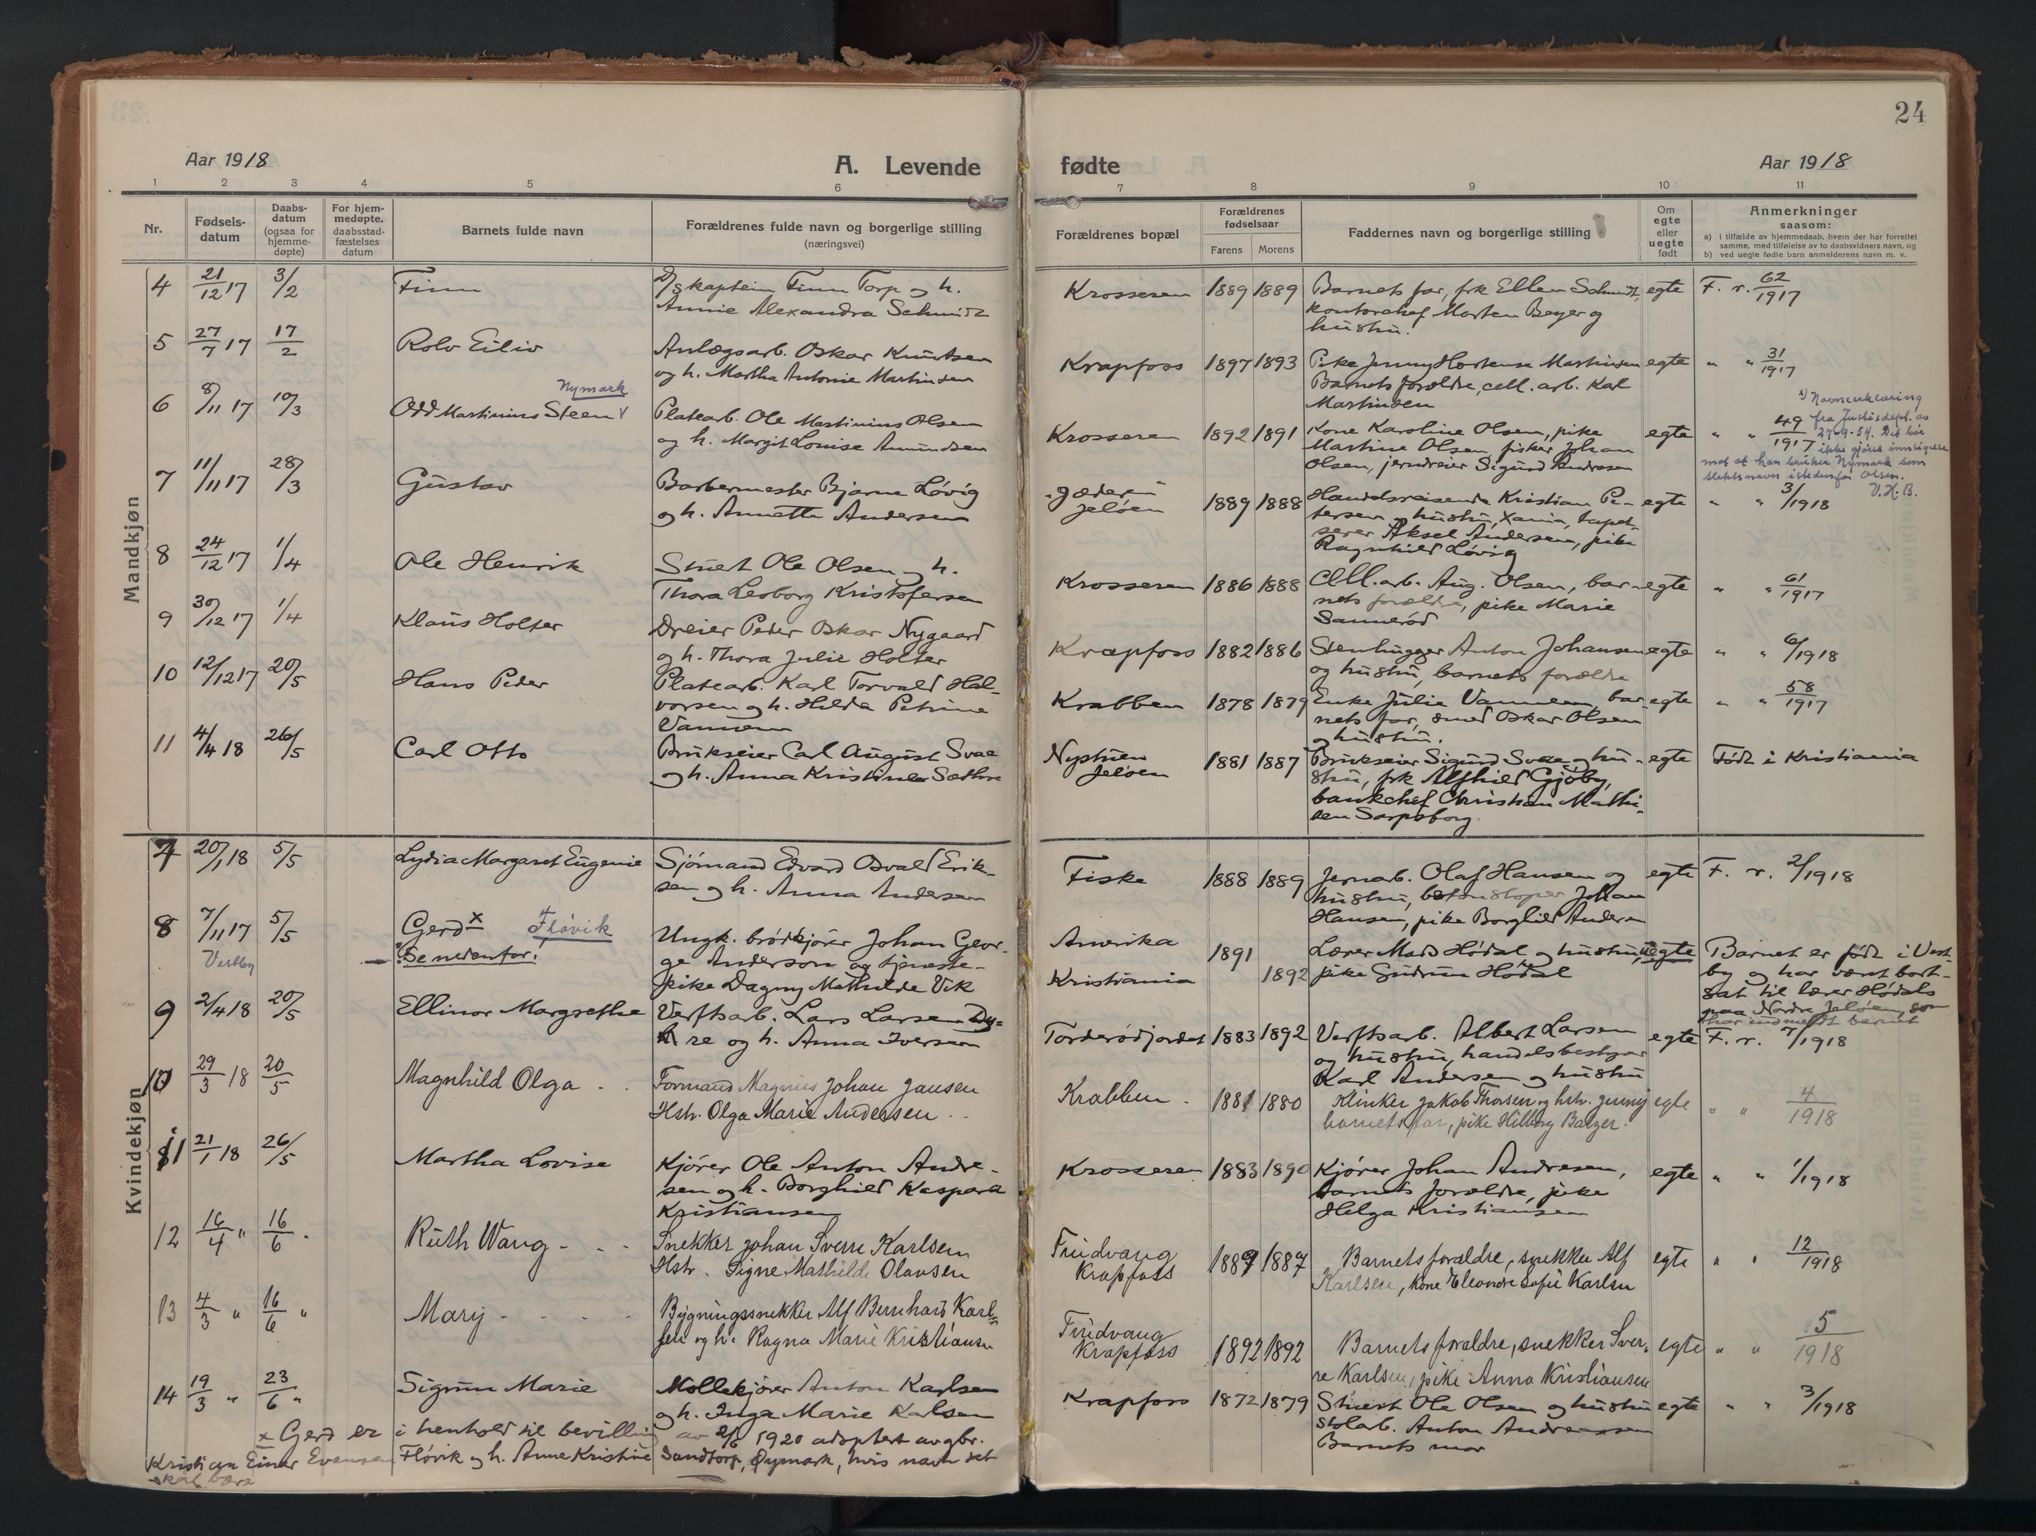 24
Aar 1918
A. Levende fødte
Aar 1918
1 2 3 4 5 6 7 8 9 10 11
Nr.
Fødsels-
datum
Daabs-
datum
(ogsaa for
hjemme-
døpte)
For hjem-
medøpte,
daabsstad-
fæstelses
datum
Barnets fulde navn
Forældrenes fulde navn og borgerlige stilling
(næringsvei)
Forældrenes bopæl
Forældrenes
fødselsaar
Farens Morens
Faddernes navn og borgerlige stilling
Om
egte
eller
uegte
født
Anmerkninger
saasom:
a) i tilfælde av hjemmedaab, hvem der har forrettet
samme, med tilføielse av to daabsvidners navn, og
b) ved uegte fødte barn anmelderens navn m. v.
Mandkjøn
4 21/12 17 3/2 Finn
D/skaptein Finn Torp og h.
Annie Alexandra Schmidt
Krosseren 1889 1889
Barnets far, frk Ellen Schmidt,
kontorchef Morten Beyer og
hustru.
egte F. r. 62/1917
5 27/7 17 17/2 Rolv Eiliv
Anlægsarb. Oskar Knutsen
og h. Martha Antonie Martinsen
Krapfoss 1897 1893
Pike Jenny Hortense Martinsen
Barnets forældre, cell. arb. Karl
Martinsen
egte " " 31/1917
6 8/11 17 10/3 Odd Martinius Steen v
Nymark
Platearb. Ole Martinius Olsen
og h. Margit Louise Amundsen
Krosseren 1892 1891
Kone Karoline Olsen, pike
Martine Olsen, fisker Johan
Olsen, jerndreier Sigurd Andresen
egte " " 49/1917
v) Navneerklæring
fra Justisdept. av
27-9-54. Det bør
ikke gjøres innsigelse
mot at han bruker Nymark som
slektsnavn istedenfor Olsen.
V.H.B.
7 11/11 17 28/3 Gustav
Barbermester Bjarne Løvig
og h. Annette Andersen
Jeløen 1889 1888
Handelsreisende Kristian Pe-
tersen og hustru, Xania, tapet-
serer Aksel Andersen, pike
Ragnhild Løvig
egte " " 3/1918
8 24/12 17 1/4 Ole Henrik
Stuert Ole Olsen og h.
Thora Leoborg Kristofersen
Krosseren 1886 1888
Cell.arb. Aug. Olsen, bar-
nets forældre, pike Marie
Sannerød
egte " " 61/1917
9 30/12 17 1/4 Klaus Holter
Dreier Peder Oskar Nygaard
og h. Thora Julie Holter
Krapfoss 1882 1886
Stenhugger Anton Johansen
og hustru, barnets forældre
egte " " 6/1918
10 12/12 17 20/5 Hans Peder
Platearb. Karl Torvald Hal-
vorsen og h. Hilda Petrine
Vannem
Krabben 1878 1879
Enke Julie Vannem, bar-
nets far, smed Oskar Olsen
og hustru.
egte " " 58/1917
11 4/4 18 26/5 Carl Otto
Brukseier Carl August Svae
og h. Anna Kristine Sæthre
Nystuen
Jeløen 1881 1887
Brukseier Sigurd Svae og hu-
stru, frk Alfhild Gjøby,
bankchef Christian Mathi-
sen Sarpsborg
egte Født i Kristiania
Kvindekjøn
7 20/1 18 5/5 Lydia Margaret Eugenie
Sjømand Edvard Osvald Erik-
sen og h. Anna Andersen
Fiske 1888 1889
Jernarb. Olaf Hansen og
hustru, betonstøper Johan
Hansen, pike Borghild Andersen
egte F. r. 2/1918
8 7/11 17 5/5 Gerd x Fløvik
Vestby
Se nedenfor!
Ungk. brødkjører Johan Geor-
ge Anderson og tjeneste-
pike Dagny Mathilde Vik
Amerika 1891
Kristiania 1892
Lærer Mads Hødal og hustru,
pike Gudrun Hødal
uegte
Barnet er født i Vest-
by og har været bort-
sat til lærer Hødals
paa Nordre Jeløen, som
har indmeldt barnet
9 2/4 18 20/5 Ellinor Margrethe
Verftsarb. Lars Larsen Dy-
re og h. Anna Iversen
Torderødjordet 1883 1892
Verftsarb. Albert Larsen
og hustru, handelsbestyrer
Karl Andersen og hustru
egte F. r. 7/1918
10 29/3 18 20/5 Magnhild Olga
Formand Magnus Johan Jansen
Hstr. Olga Marie Andersen
Krabben 1881 1880
Klinker Jakob Thosen og hstr. Jenny
barnets far, pike Hilborg Balzer.
egte " " 4/1918
11 21/1 18 26/5 Martha Lovise
Kjører Ole Anton Andre-
sen og h. Borghild Kaspara
Kristiansen
Krosseren 1883 1890
Kjører Johan Andresen,
barnets forældre, pike
Helga Kristiansen
egte " " 1/1918
12 16/4 " 16/6 Ruth Wang
Snekker Johan Sverre Karlsen
Hstr. Signe Mathilde Olavsen
Fridvang
Krapfoss 1889 1887
Barnets forældre, snekker Alf
Karlsen, kone Eleonore Sofie Karlsen
egte " " 12/1918
13 4/3 " 16/6 " Mary
Bygningssnekker Alf Bernhard Karl-
sen og h. Ragna Marie Kristiansen
Fridvang
Krapfoss 1892 1892
Barnets forældre, snekker Sver-
re Karlsen, pike Anna Kristiansen
egte " " 5/1918
14 19/3 " 23/6 " Sigrun Marie
Møllekjører Anton Karlsen
og h. Inga Marie Karlsen
Krapfoss 1872 1879
Stuert Ole Olsen og hustru
stolarb. Anton Andreassen
Barnets mor
egte " " 3/1918
x Gerd er i henhold til bevilling av 2/6 1920 adoptert av gbr.
Kristian Einar Evensen Fløvik og h. Anne Kristine Sandtorp, Øymark, hvis navn det
skal bære